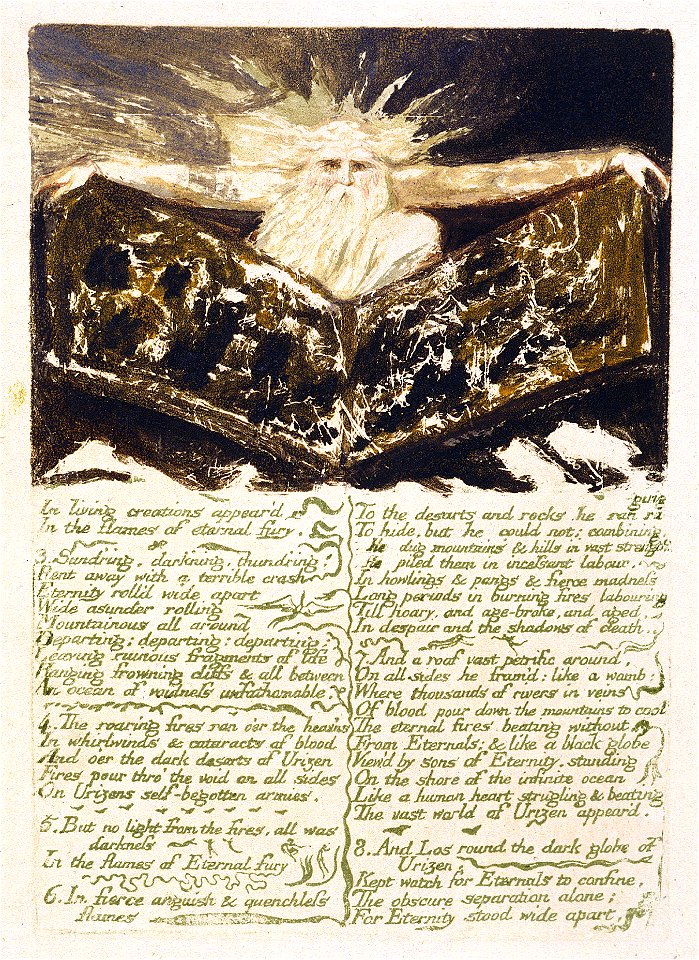 In living creations appear'd
In the flames of eternal fury.
3. Sundring, darkning, thundring;
Rent away with a terrible crash
Eternity roll'd wide apart
Wide asunder rolling
Mountainous all around
Departing; departing; departing:
Leaving ruinous fragments of life
Hanging frowning cliffs & all between
An ocean of voidness unfathomable.
4. The roaring fires ran o'er the heav'ns
In whirlwinds & cataracts of blood
And o'er the dark desarts of Urizen
Fires pour thro' the void on all sides
On Urizens self-begotten armies.
5. But no light from the fires. all was
darkness
In the flames of Eternal fury
6. In fierce anguish & quenchless
flames
To the desarts and rocks he ran raging
To hide, but he could not; combining
He dug mountains & hills in vast strength,
He piled them in incessant labour,
In howlings & pangs & fierce madness
Long periods in burning fires labouring
Till hoary, and age-broke, and aged,
In despair and the shadows of death.
7. And a roof vast petrific around,
On all sides he fram'd: like a womb;
Where thousands of rivers in veins
Of blood pour down the mountains to cool
The eternal fires beating without
From Eternals; & like a black globe
View'd by sons of Eternity, standing
On the shore of the infinite ocean
Like a human heart strugling & beating
The vast world of Urizen appear'd.
8. And Los round the dark globe of
Urizen,
Kept watch for Eternals to confine,
The obscure separation alone;
For Eternity stood wide apart,